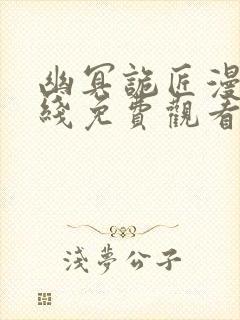 幽冥詭匠漫
綫免費觀看
淺夢公子